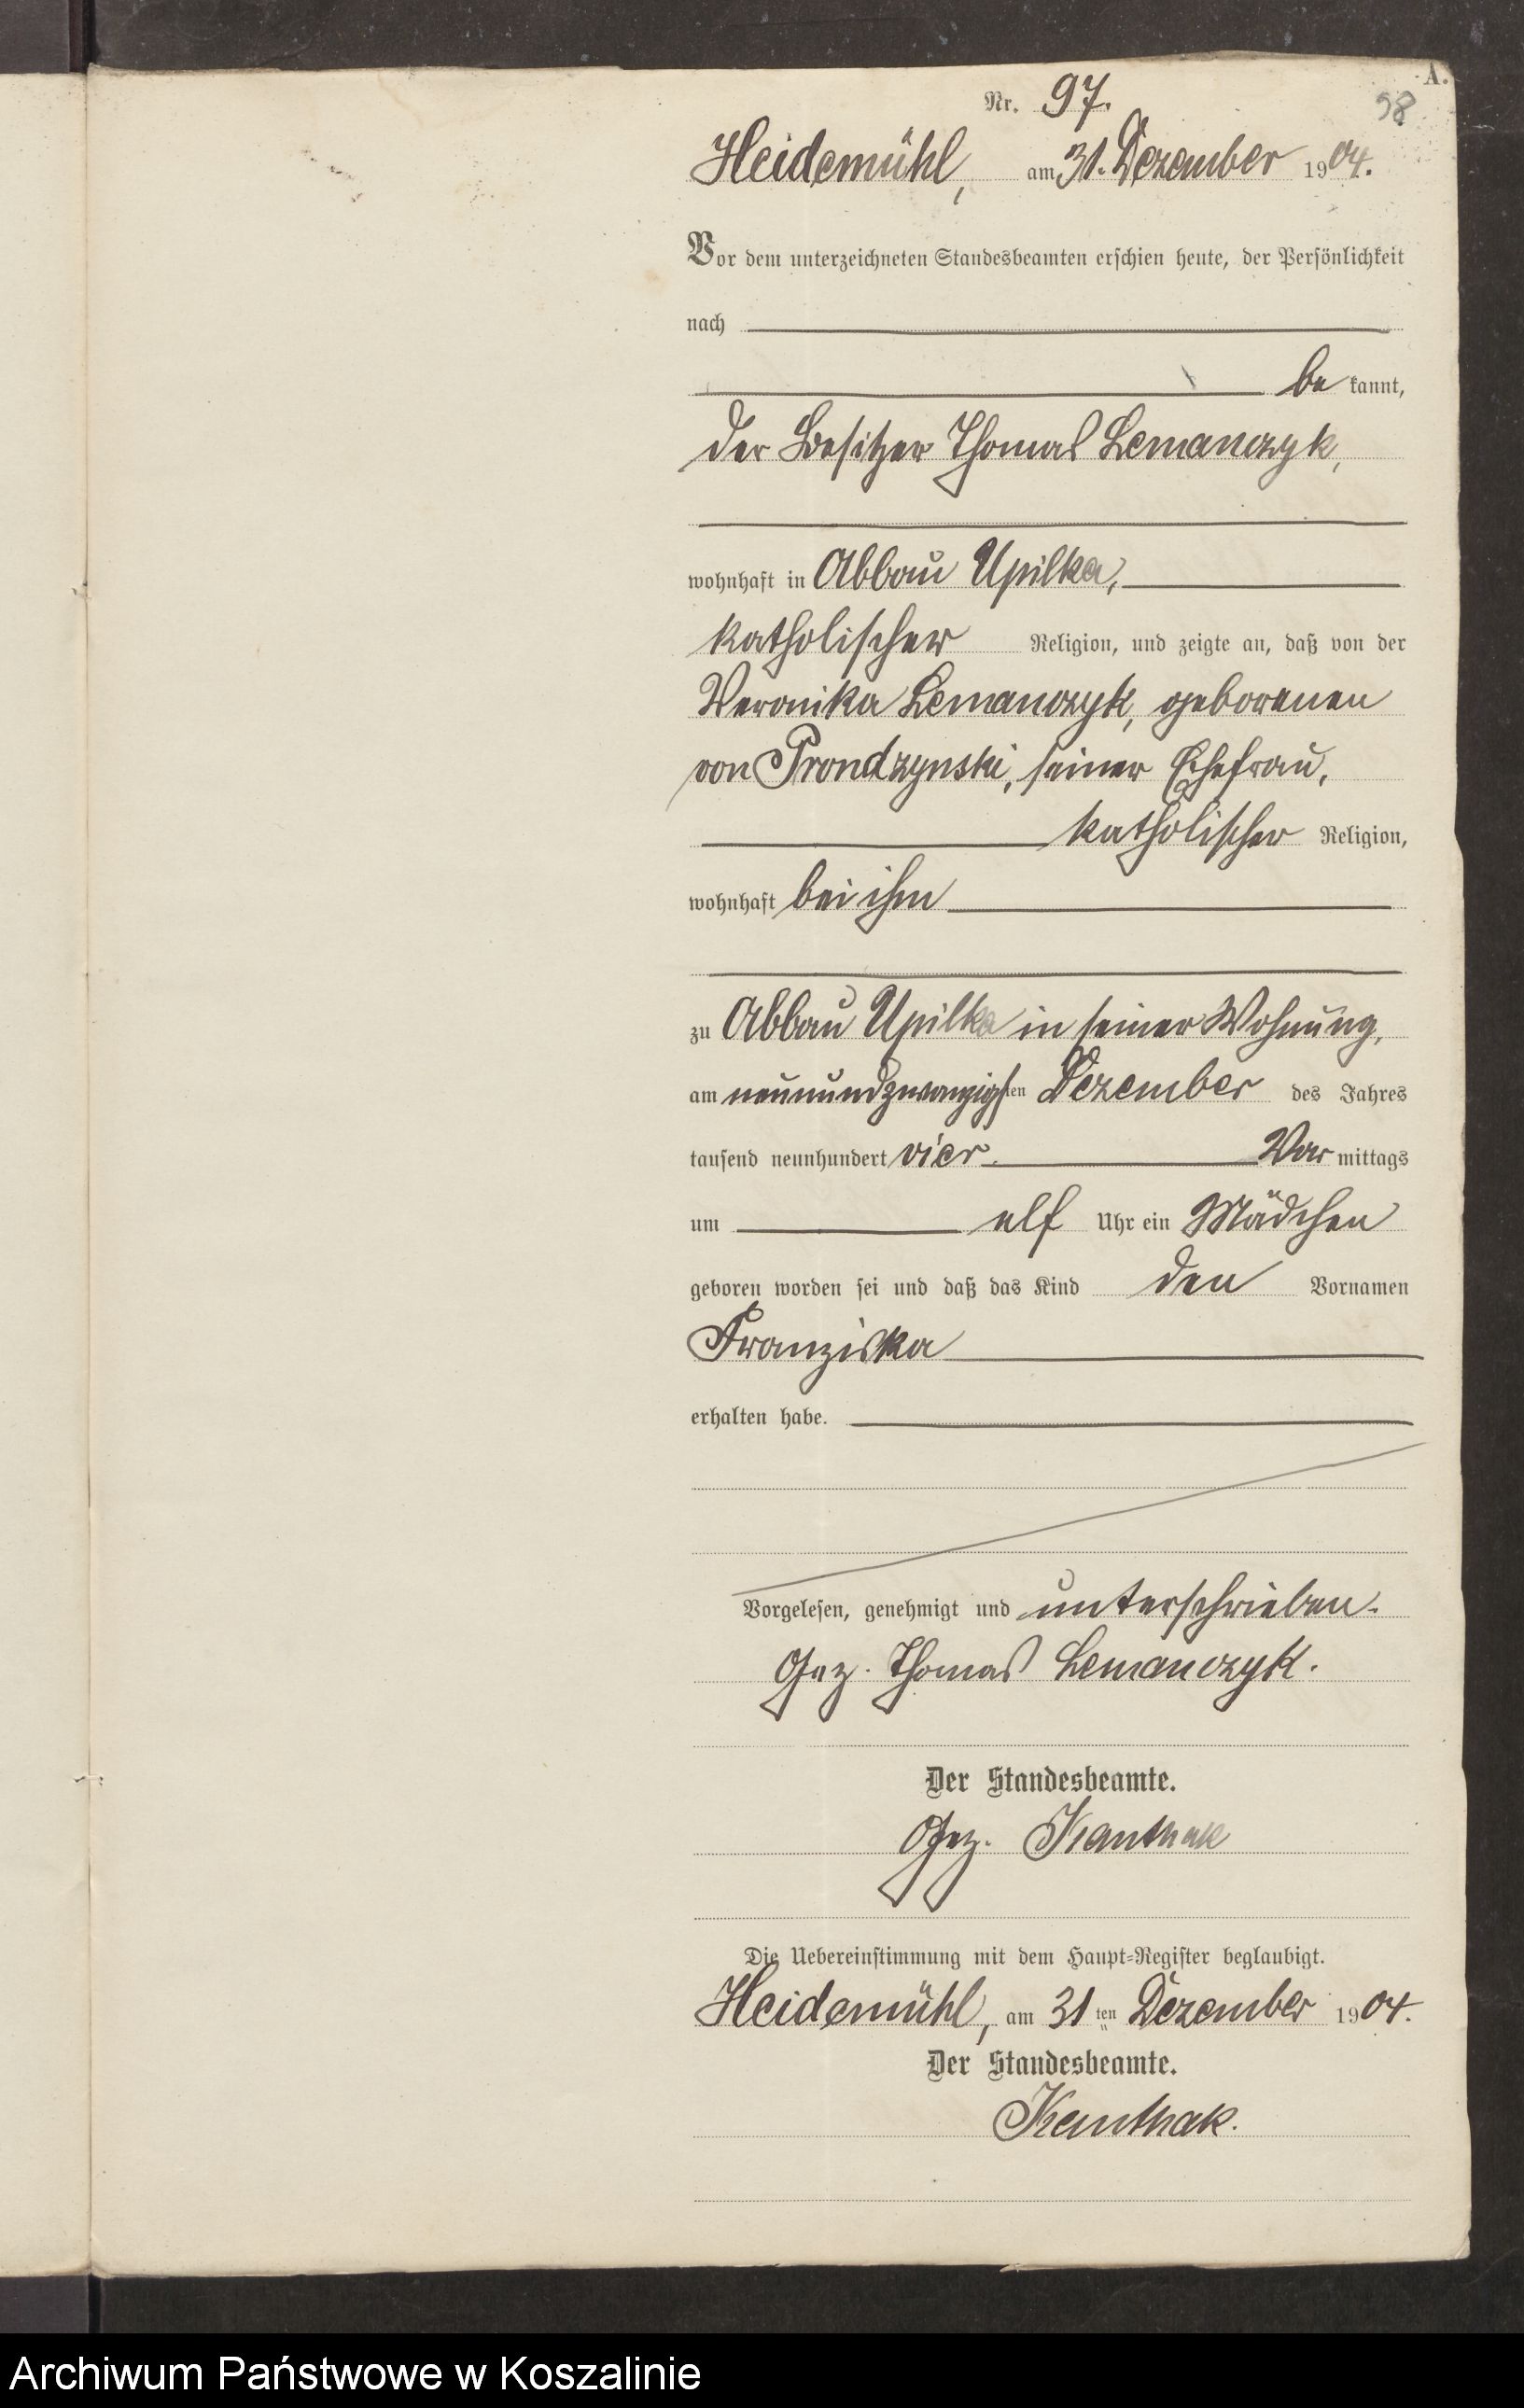 A.
Nr. 97.
98
Heidemühl, am 31. Dezember 1904.
Vor dem unterzeichneten Standesbeamten erschien heute, der Persönlichkeit
nach
be kannt,
der Besitzer Thomas Lemanczyk,
wohnhaft in Abbau Upilka,
katholischer Religion, und zeigte an, daß von der
Veronika Lemanczyk, geborenen
von Prondzynski, seiner Ehefrau,
katholischer Religion,
wohnhaft bei ihm
zu Abbau Upilka in seiner Wohnung,
am neunundzwanzigsten Dezember des Jahres
tausend neunhundert vier. Vor mittags
um elf Uhr ein Mädchen
geboren worden sei und daß das Kind den Vornamen
Franziska
erhalten habe.
Vorgelesen, genehmigt und unterschrieben.
Gez. Thomas Lemanczyk.
Der Standesbeamte.
Gez. Kanthak
Die Uebereinstimmung mit dem Haupt-Register beglaubigt.
Heidemühl, am 31 ten Dezember 1904.
Der Standesbeamte.
Kanthak.
Archiwum Państwowe w Koszalinie